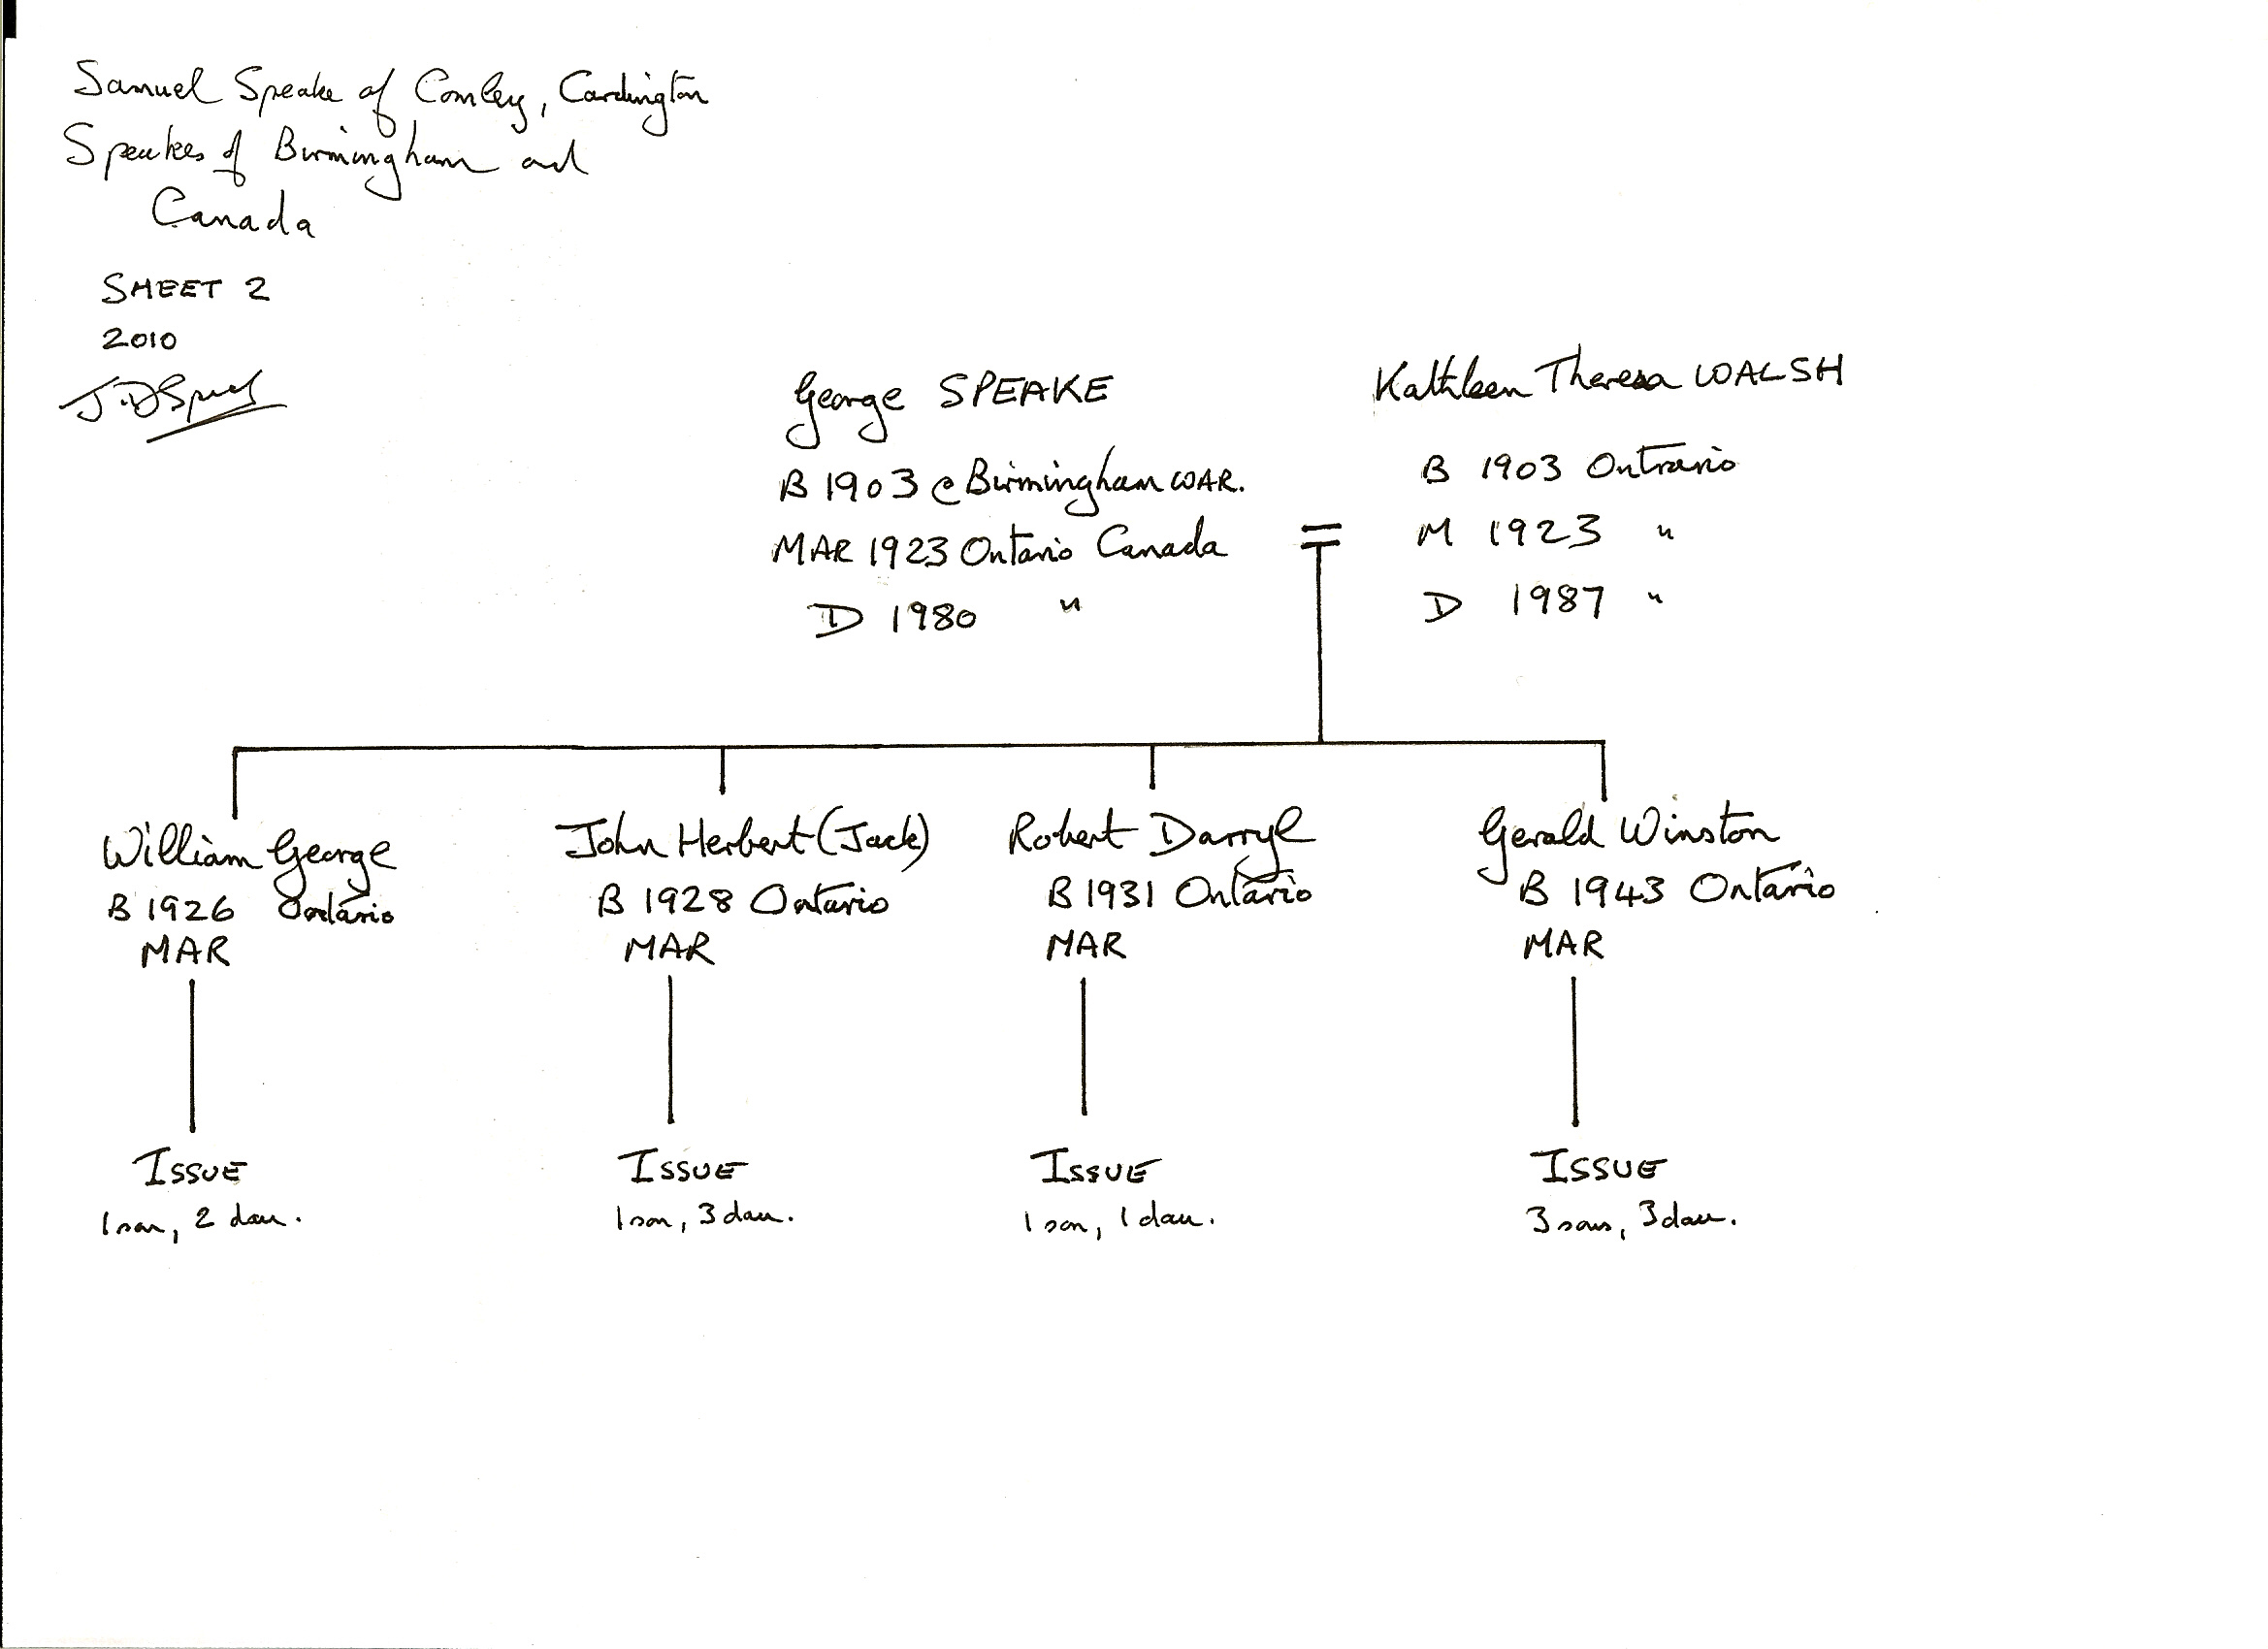 Samuel Speake of Comley, Cardington
Speakes of Birmingham and
Canada
SHEET 2
2010
George SPEAKE
B 1903 @ Birmingham WAR.
MAR 1923 Ontario Canada
D 1980 "
=
Kathleen Theresa WALSH
B 1903 Ontrario
M 1923 "
D 1987 "
William George
B 1926 Ontario
MAR
ISSUE
1 son, 2 dau.
John Herbert (Jack)
B 1928 Ontario
MAR
ISSUE
1 son, 3 dau.
Robert Darryl
B 1931 Ontario
MAR
ISSUE
1 son, 1 dau.
Gerald Winston
B 1943 Ontario
MAR
ISSUE
3 sons, 3 dau.